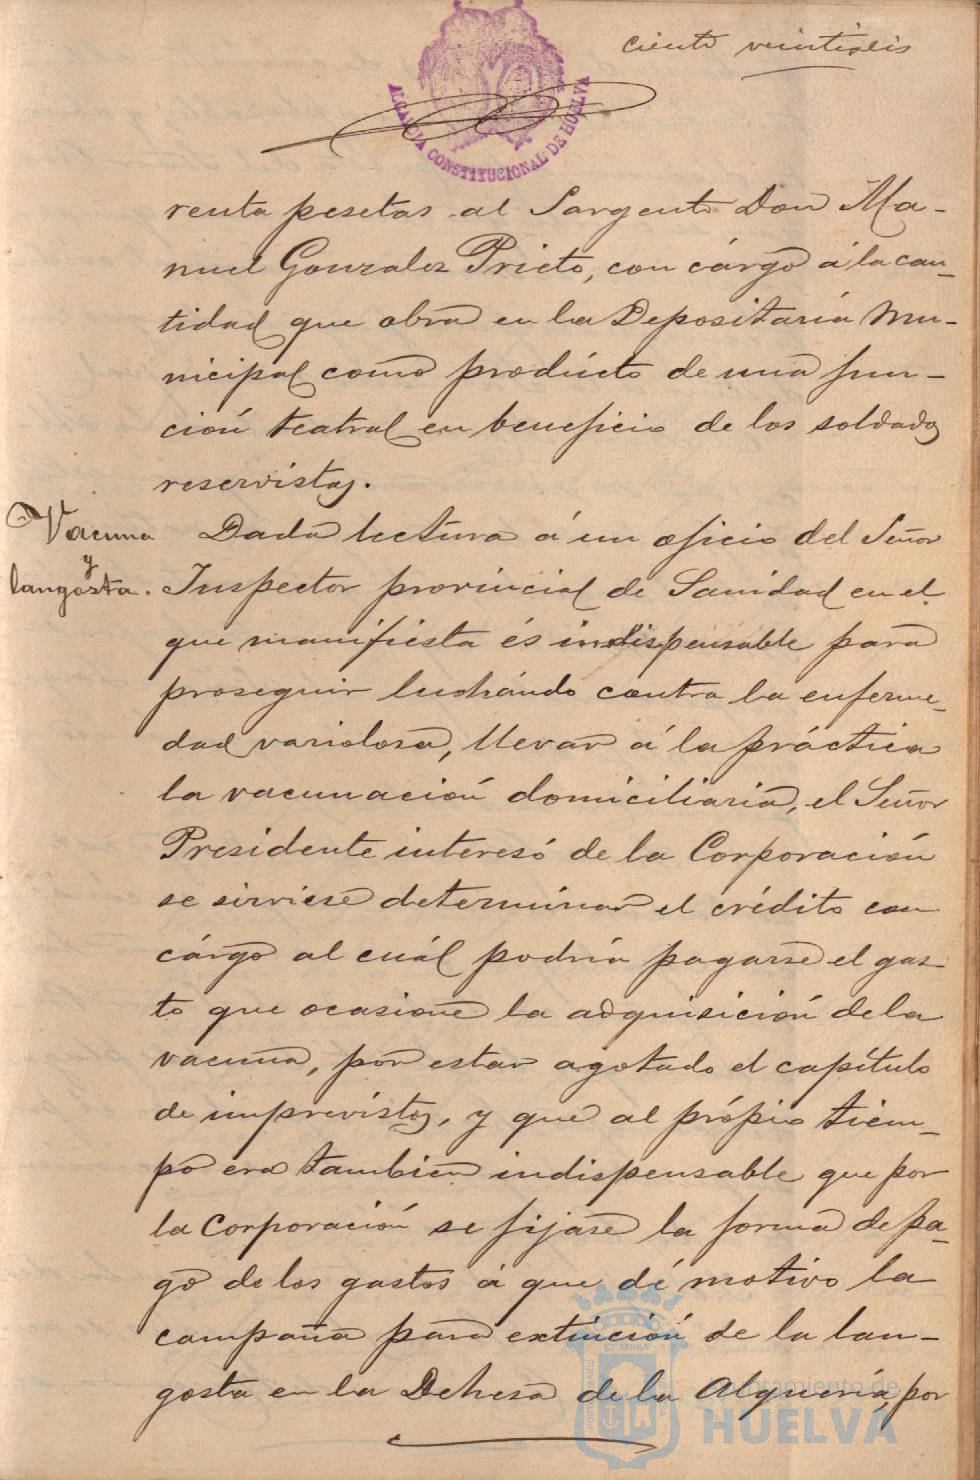 ciento veintiseis
ALCALDIA CONSTITUCIONAL DE HUELVA
renta pesetas al Sargento Don Ma-
nuel Gonzalez Prieto, con cárgo á la can-
tidad que obra en la Depositaría Mu-
nicipal como prodúcto de una fun-
ción teatral en beneficio de los soldados
reservistas.
Vacuna
y
langosta.
Dada lectura á un oficio del Señor
Inspector provincial de Sanidad en el
que manifiesta és indispensable para
proseguir luchándo contra la enferme-
dad variolosa, llevar á la práctica
la vacunación domiciliaria, el Señor
Presidente interesó de la Corporación
se sirviese determinar el crédito con
cárgo al cuál podría pagarse el gas-
to que ocasione la adquisición de la
vacuna, por estar agotado el capítulo
de imprevistos, y que al própio tiem-
po era tambien indispensable que por
la Corporación se fijase la forma de pa-
go de los gastos á que dé motivo la
campaña para extinción de la lan-
gosta en la Dehesa de la Alquería, por
Ayuntamiento de
HUELVA